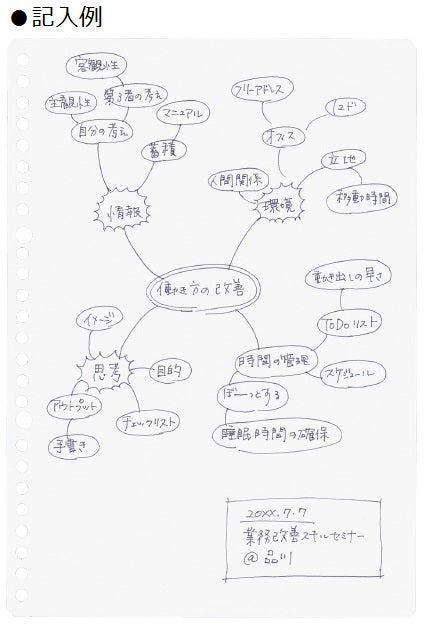 ●記入例
客観性
主観性
第3者の考え
自分の考え
マニュアル
蓄積
情報
フリーアドレス
オフィス
立地
移動時間
人間関係
環境
働き方の改善
動き出しの早さ
ToDoリスト
時間の管理
スケジュール
ぼーっとする
睡眠時間の確保
イメージ
思考
目的
アウトプット
手書き
チェックリスト
20XX.7.7
業務改善スキルセミナー
@品川